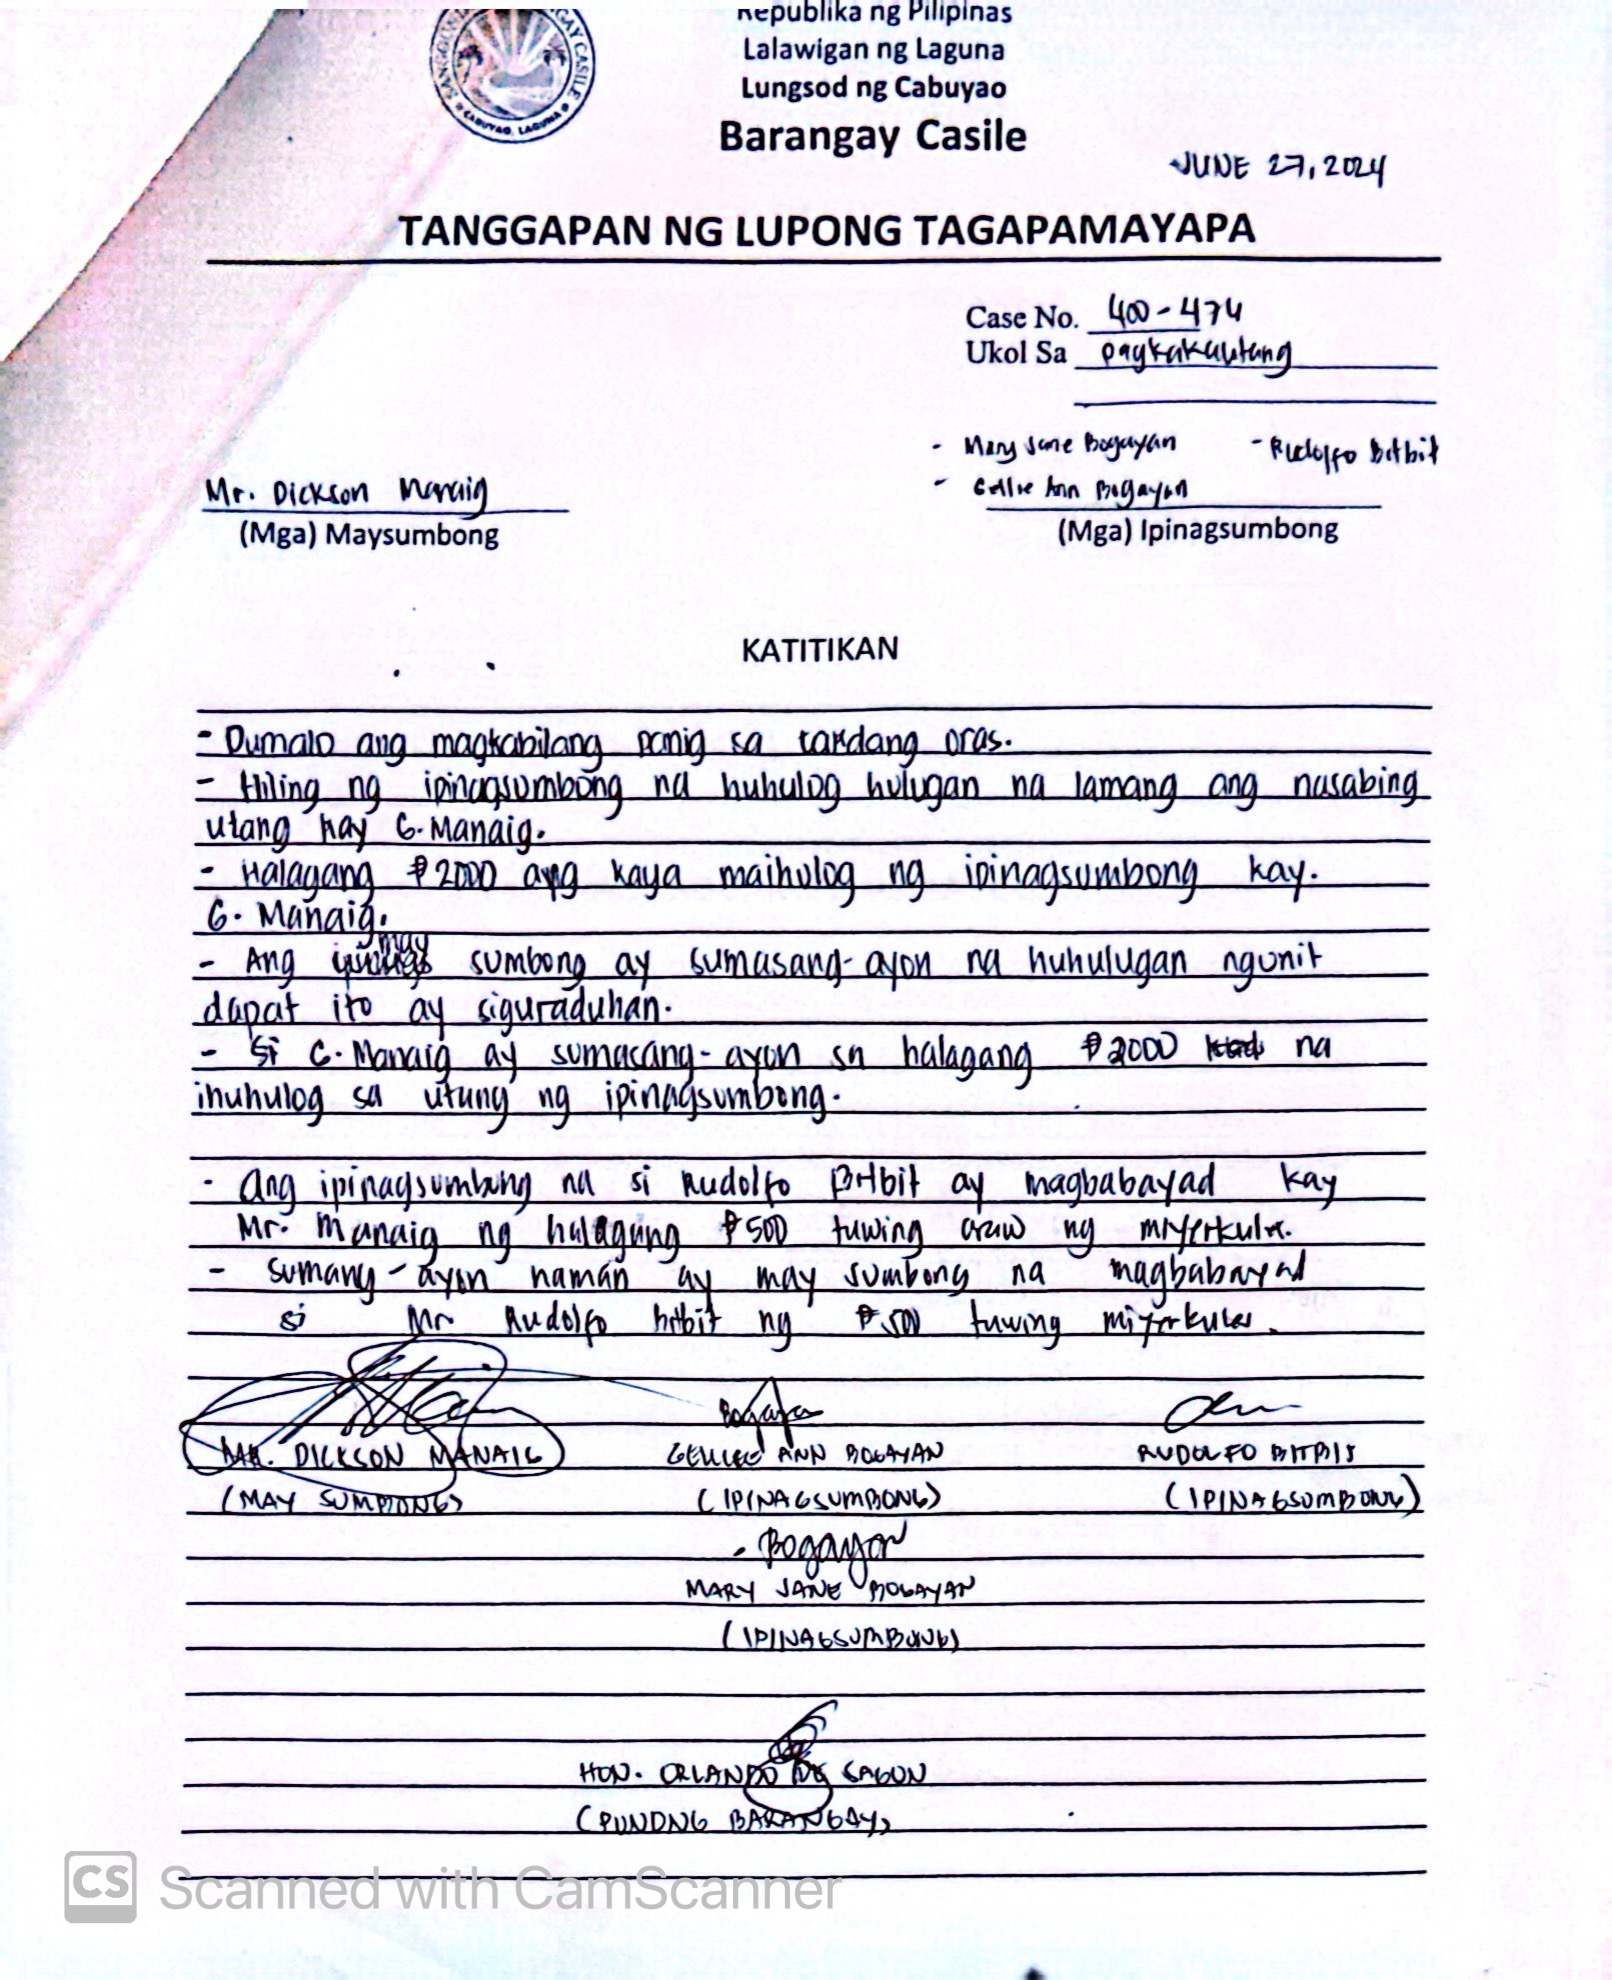 Republika ng Pilipinas
Lalawigan ng Laguna
Lungsod ng Cabuyao
Barangay Casile
JUNE 27, 2024
TANGGAPAN NG LUPONG TAGAPAMAYAPA
Case No. 400-474
Ukol Sa pagkakautang
- Mary Jane Bogayan - Rudolfo Bitbit
Mr. Dickson Manaig - Gellie Ann Bogayan
(Mga) Maysumbong (Mga) Ipinagsumbong
KATITIKAN
- Dumalo ang magkabilang panig sa takdang oras.
- Hiling ng ipinagsumbong na huhulog hulugan na lamang ang nasabing
utang kay G. Manaig.
- Halagang ₱2000 ang kaya maihulog ng ipinagsumbong kay.
G. Manaig.
- Ang may sumbong ay sumasang-ayon na huhulugan ngunit
dapat ito ay siguraduhan.
- Si G. Manaig ay sumasang-ayon sa halagang ₱2000 na
ihuhulog sa utang ng ipinagsumbong.
- Ang ipinagsumbong na si Rudolfo Bitbit ay magbabayad kay
Mr. Manaig ng halagang ₱500 tuwing araw ng miyerkules.
- sumang-ayon naman ay may sumbong na magbabayad
si Mr Rudolfo bitbit ng ₱500 tuwing miyerkules.
Bogayan
MR. DICKSON MANAIG GELLIE ANN BOGAYAN RUDOLFO BITBIT
(MAY SUMBONG) (IPINAGSUMBONG) (IPINAGSUMBONG)
- Bogayan
MARY JANE BOGAYAN
(IPINAGSUMBONG)
HON. ORLANDO DE SAGUN
(PUNONG BARANGAY)
CS Scanned with CamScanner